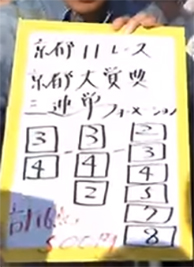 京都11レース
京都大賞典
三連単フォーメーション
3 - 3 - 2
4 4 3
2 4
5
7
8
計
500円